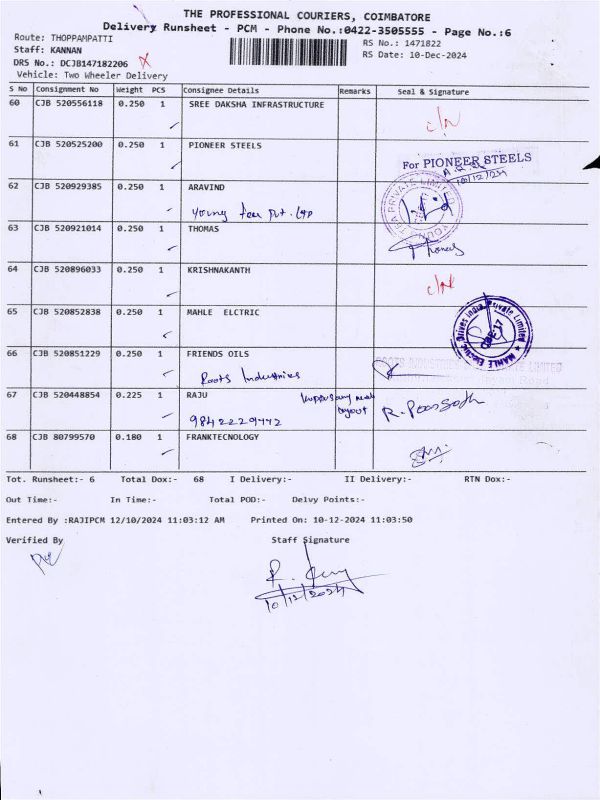 THE PROFESSIONAL COURIERS, COIMBATORE
Delivery Runsheet - PCM - Phone No.:0422-3505555 - Page No.:6
Route: THOPPAMPATTI
RS No.: 1471822
Staff: KANNAN
RS Date: 10-Dec-2024
DRS No.: DCJB147182206
Vehicle: Two Wheeler Delivery
S No Consignment No Weight PCS Consignee Details Remarks Seal & Signature
60 CJB 520556118 0.250 1 SREE DAKSHA INFRASTRUCTURE
61 CJB 520525200 0.250 1 PIONEER STEELS
For PIONEER STEELS
10/12/24
62 CJB 520929385 0.250 1 ARAVIND
Young
63 CJB 520921014 0.250 1 THOMAS
Thomas
64 CJB 520896033 0.250 1 KRISHNAKANTH
65 CJB 520852838 0.250 1 MAHLE ELCTRIC
MAHLE Electric Drives India Private Limited
66 CJB 520851229 0.250 1 FRIENDS OILS
Roots Industries
67 CJB 520448854 0.225 1 RAJU
9842229442
layout
68 CJB 80799570 0.180 1 FRANKTECNOLOGY
Tot. Runsheet:- 6 Total Dox:- 68 I Delivery:- II Delivery:- RTN Dox:-
Out Time:- In Time:- Total POD:- Delvy Points:-
Entered By :RAJIPCM 12/10/2024 11:03:12 AM Printed On: 10-12-2024 11:03:50
Verified By Staff Signature
10/12/2024